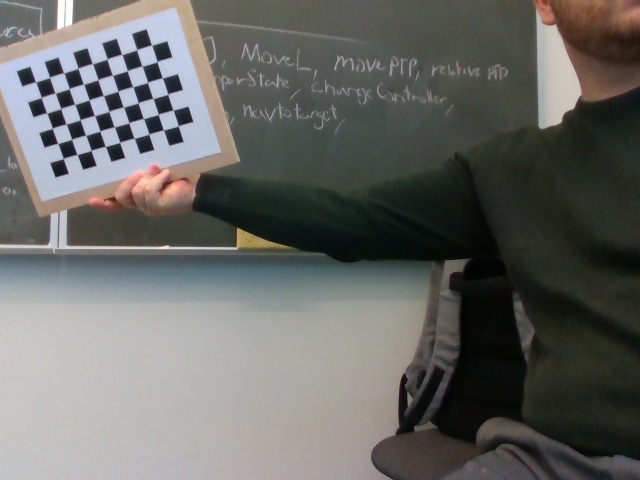 J, MoveL, movePTP, relative PTP
perState, changeController,
navtotarget,